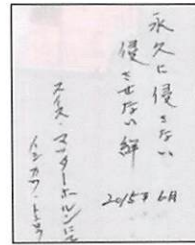 永久に侵さない
侵させない絆
2015年 6月
スイス・マッターホルンにて